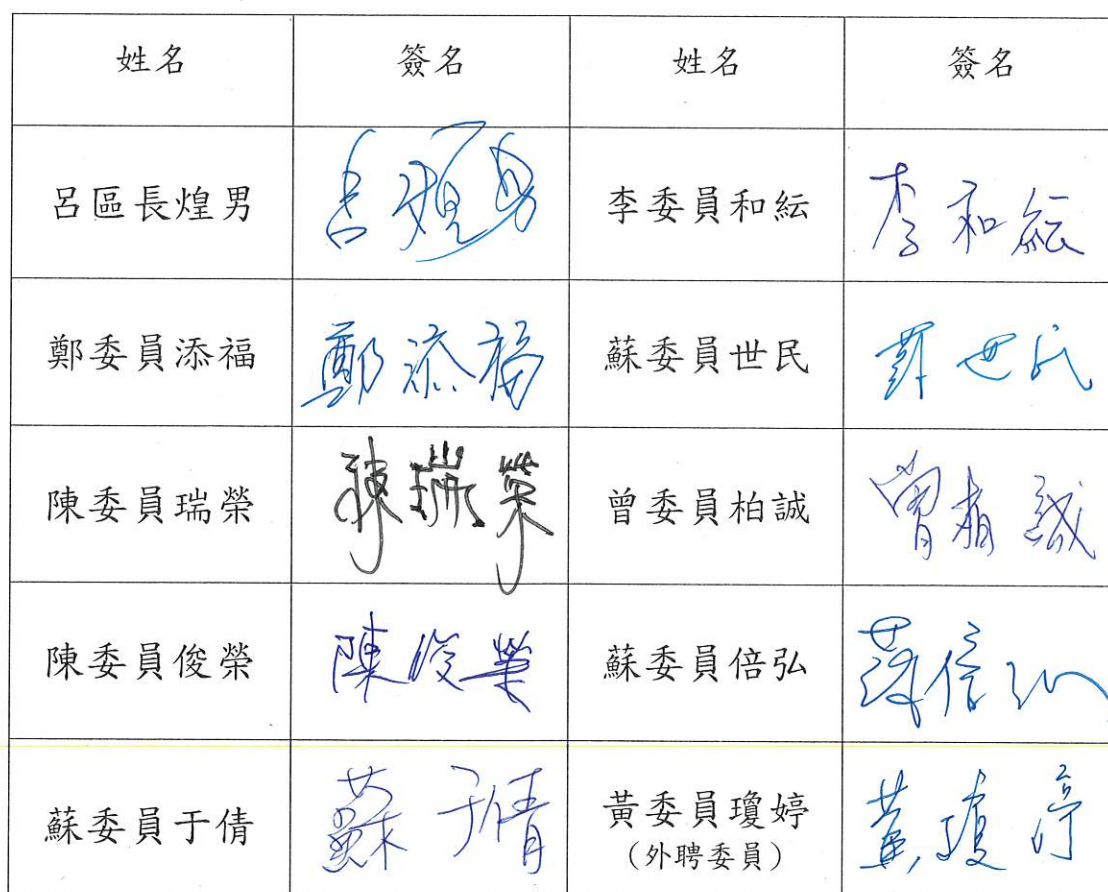 姓名 簽名 姓名 簽名
呂區長煌男 呂煌男 李委員和紜 李和紜
鄭委員添福 鄭添福 蘇委員世民 蘇世民
陳委員瑞榮 陳瑞榮 曾委員柏誠 曾柏誠
陳委員俊榮 陳俊榮 蘇委員倍弘 蘇倍弘
蘇委員于倩 蘇于倩 黃委員瓊婷 黃瓊婷
(外聘委員)